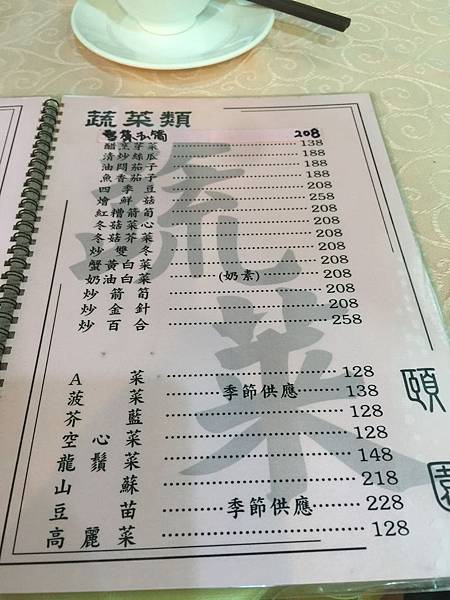 蔬菜類
208
醋烹芽菜 138
清炒絲瓜 188
油悶茄子 188
魚香茄子 188
四季豆 208
燴鮮菇 258
紅糟箭筍 208
冬菇菜心 208
冬菇芥菜 208
炒雙冬 208
蟹黃白菜 208
奶油白菜 (奶素) 208
炒箭筍 208
炒金針 208
炒百合 258
A菜 128
菠菜 季節供應 138
芥藍 128
空心菜 128
龍鬚菜 148
山蘇 218
豆苗 季節供應 228
高麗菜 128
蔬菜
頤園